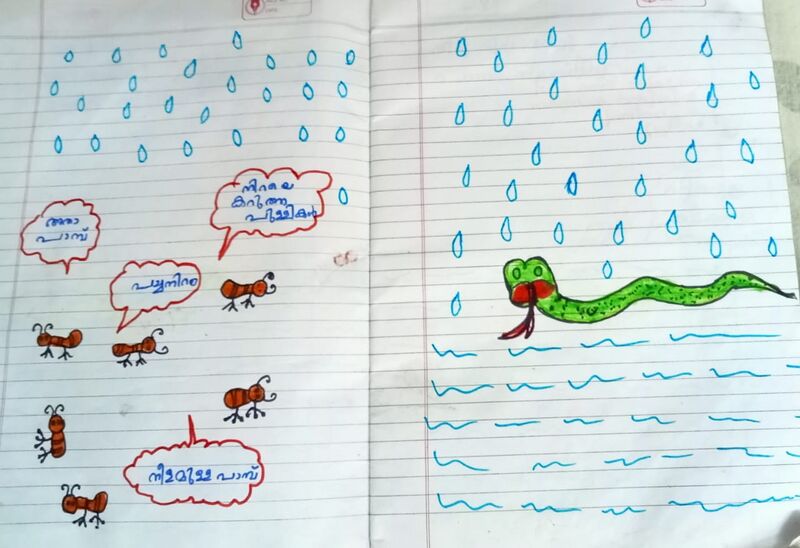 അതാ
പാമ്പ്
പച്ചനിറം
നിറയെ
കറുത്ത
പുള്ളികൾ
നീളമുള്ള പാമ്പ്